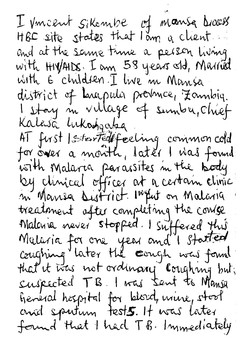 I vincent sikembe of mansa Diocess
HBC site states that I am a client
and at the same time a person living
with HIV/AIDS. I am 58 year old, Married
with 6 children. I live in Mansa
district of Luapula province, Zambia.
I stay in village of sumbu, chief
Kalesa
AT first I started feeling common cold
for over a month, later I was found
with Malaria parasites in the body
by clinical officer at a certain clinic
in Mansa District. I put on Malaria
treatment after completing the course
Malaria never stopped. I suffered this
Malaria for one year and I started
coughing later the cough was found
that it was not ordinary coughing but
suspected T.B. I was sent to Mansa
General hospital for blood, urine, stool
and sputum tests. It was later
found that I had T.B. Immediately